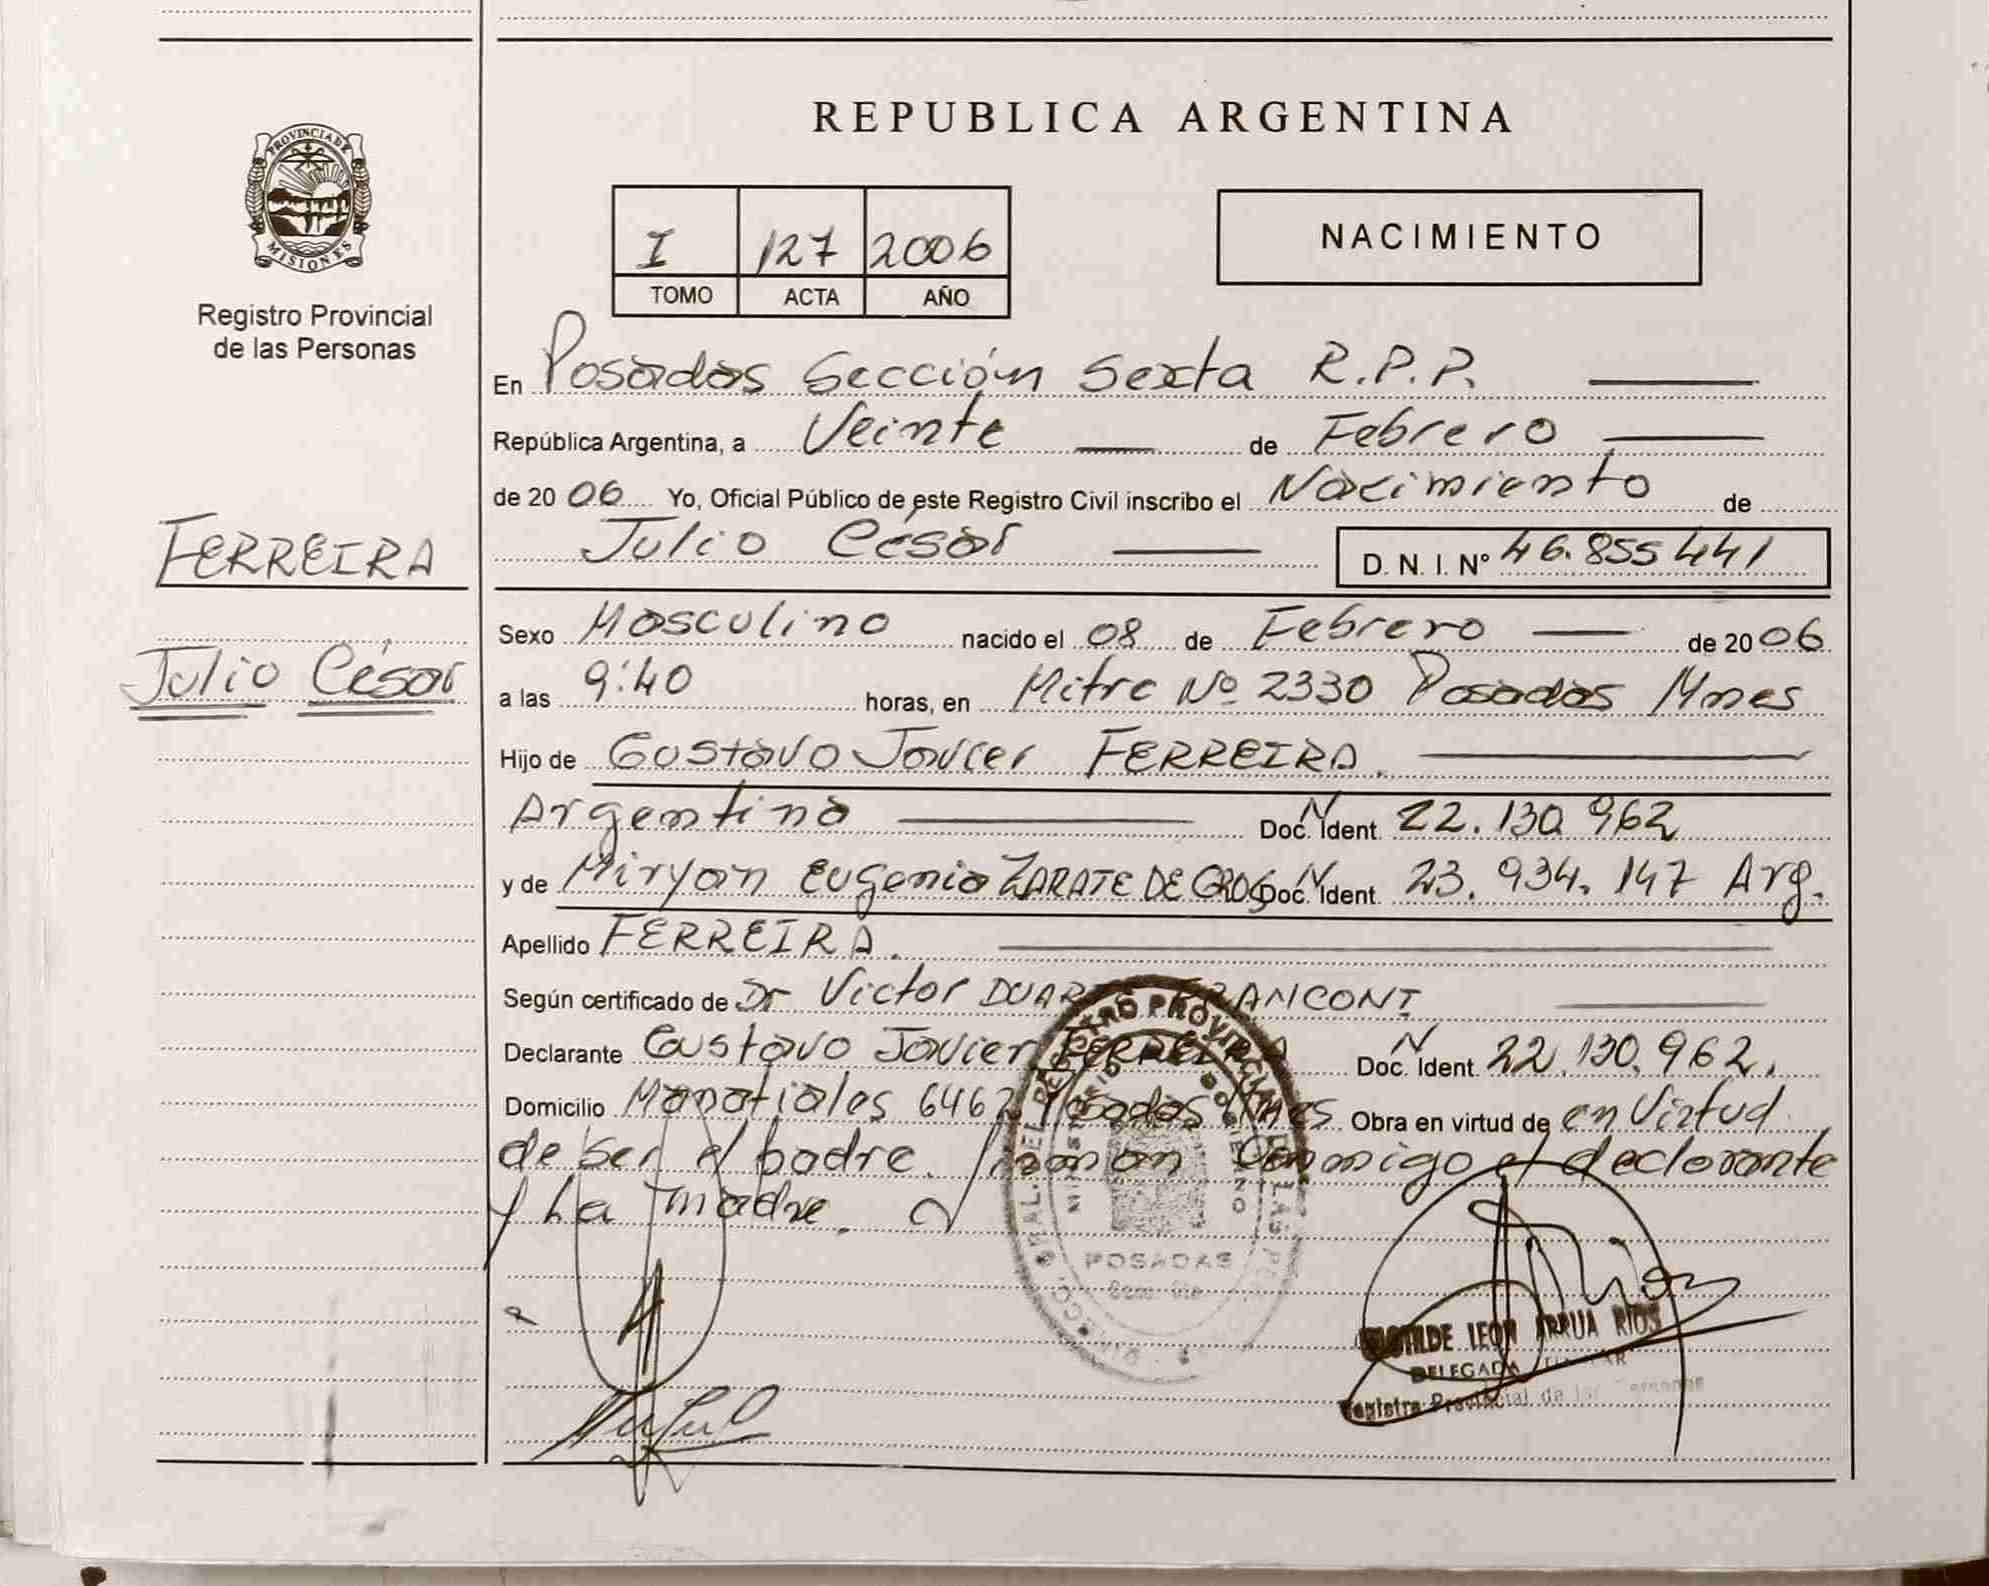 REPUBLICA ARGENTINA
PROVINCIA DE
MISIONES
Registro Provincial
de las Personas
I 127 2006
TOMO ACTA AÑO
NACIMIENTO
En Posadas Sección Sexta R.P.P.
República Argentina, a Veinte de Febrero
de 2006 Yo, Oficial Público de este Registro Civil inscribo el Nacimiento de
Julio César D. N. I. Nº 46.855441
FERREIRA
Julio César
Sexo Masculino nacido el 08 de Febrero de 2006
a las 9:40 horas, en Mitre Nº 2330 Posadas Mnes
Hijo de Gustavo Javier FERREIRA.
Argentina Doc. N Ident. 22.130.962
y de Miryan Eugenia ZARATE DE Doc. N Ident. 23.934.147 Arg.
Apellido FERREIRA.
Según certificado de Dr Victor DUARTE
Declarante Gustavo Javier FERREIRA Doc. N Ident. 22.130.962.
Domicilio Manatiales 6462 Posadas Mnes Obra en virtud de en Virtud
de ser el padre. Firman Conmigo el declarante
y La madre.
POSADAS
LEON ARRUA RIOS
DELEGADA
Registro Provincial de las Personas